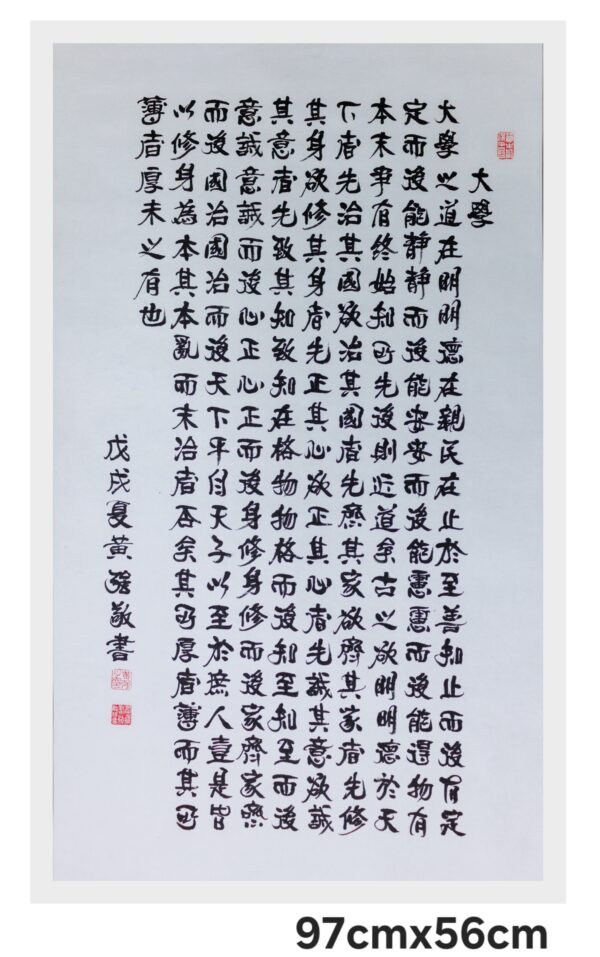 大學
大學之道在明明德在親民在止於至善知止而後有定
定而後能靜靜而後能安安而後能慮慮而後能得物有
本末事有終始知所先後則近道矣古之欲明明德於天
下者先治其國欲治其國者先齊其家欲齊其家者先修
其身欲修其身者先正其心欲正其心者先誠其意欲誠
其意者先致其知致知在格物物格而後知至知至而後
意誠意誠而後心正心正而後身修身修而後家齊家齊
而後國治國治而後天下平自天子以至於庶人壹是皆
以修身為本其本亂而末治者否矣其所厚者薄而其所
薄者厚未之有也
戊戌夏黃敬書
97cmx56cm